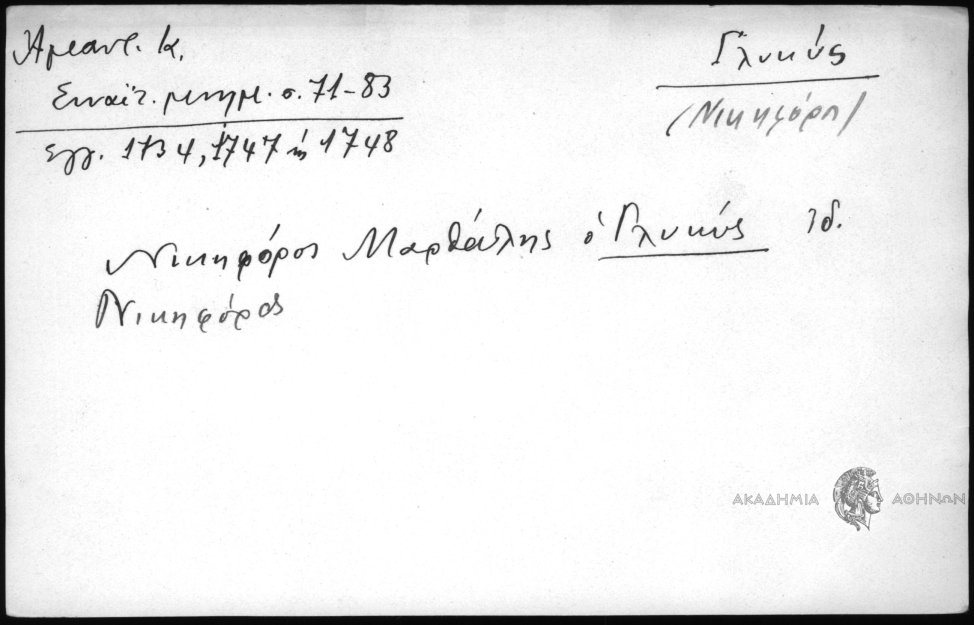 Ἀμαντ. Κ.
Σιναϊτ. μνημ. σ. 71-83
ἔγγ. 1734, 1747 ἢ 1748
Γλυκύς
(Νικηφόρος)
Νικηφόρος Μαρθάλης ὁ Γλυκύς ἰδ.
Νικηφόρος
ΑΚΑΔΗΜΙΑ ΑΘΗΝΩΝ